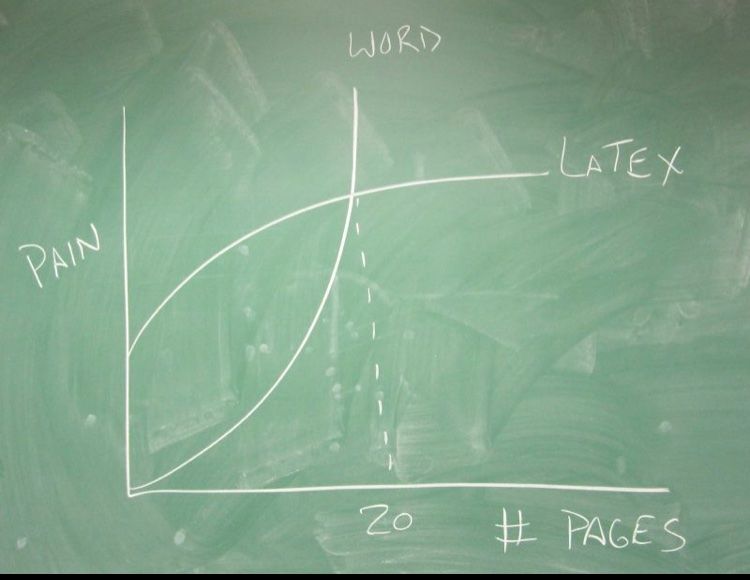 WORD
LATEX
PAIN
20
# PAGES